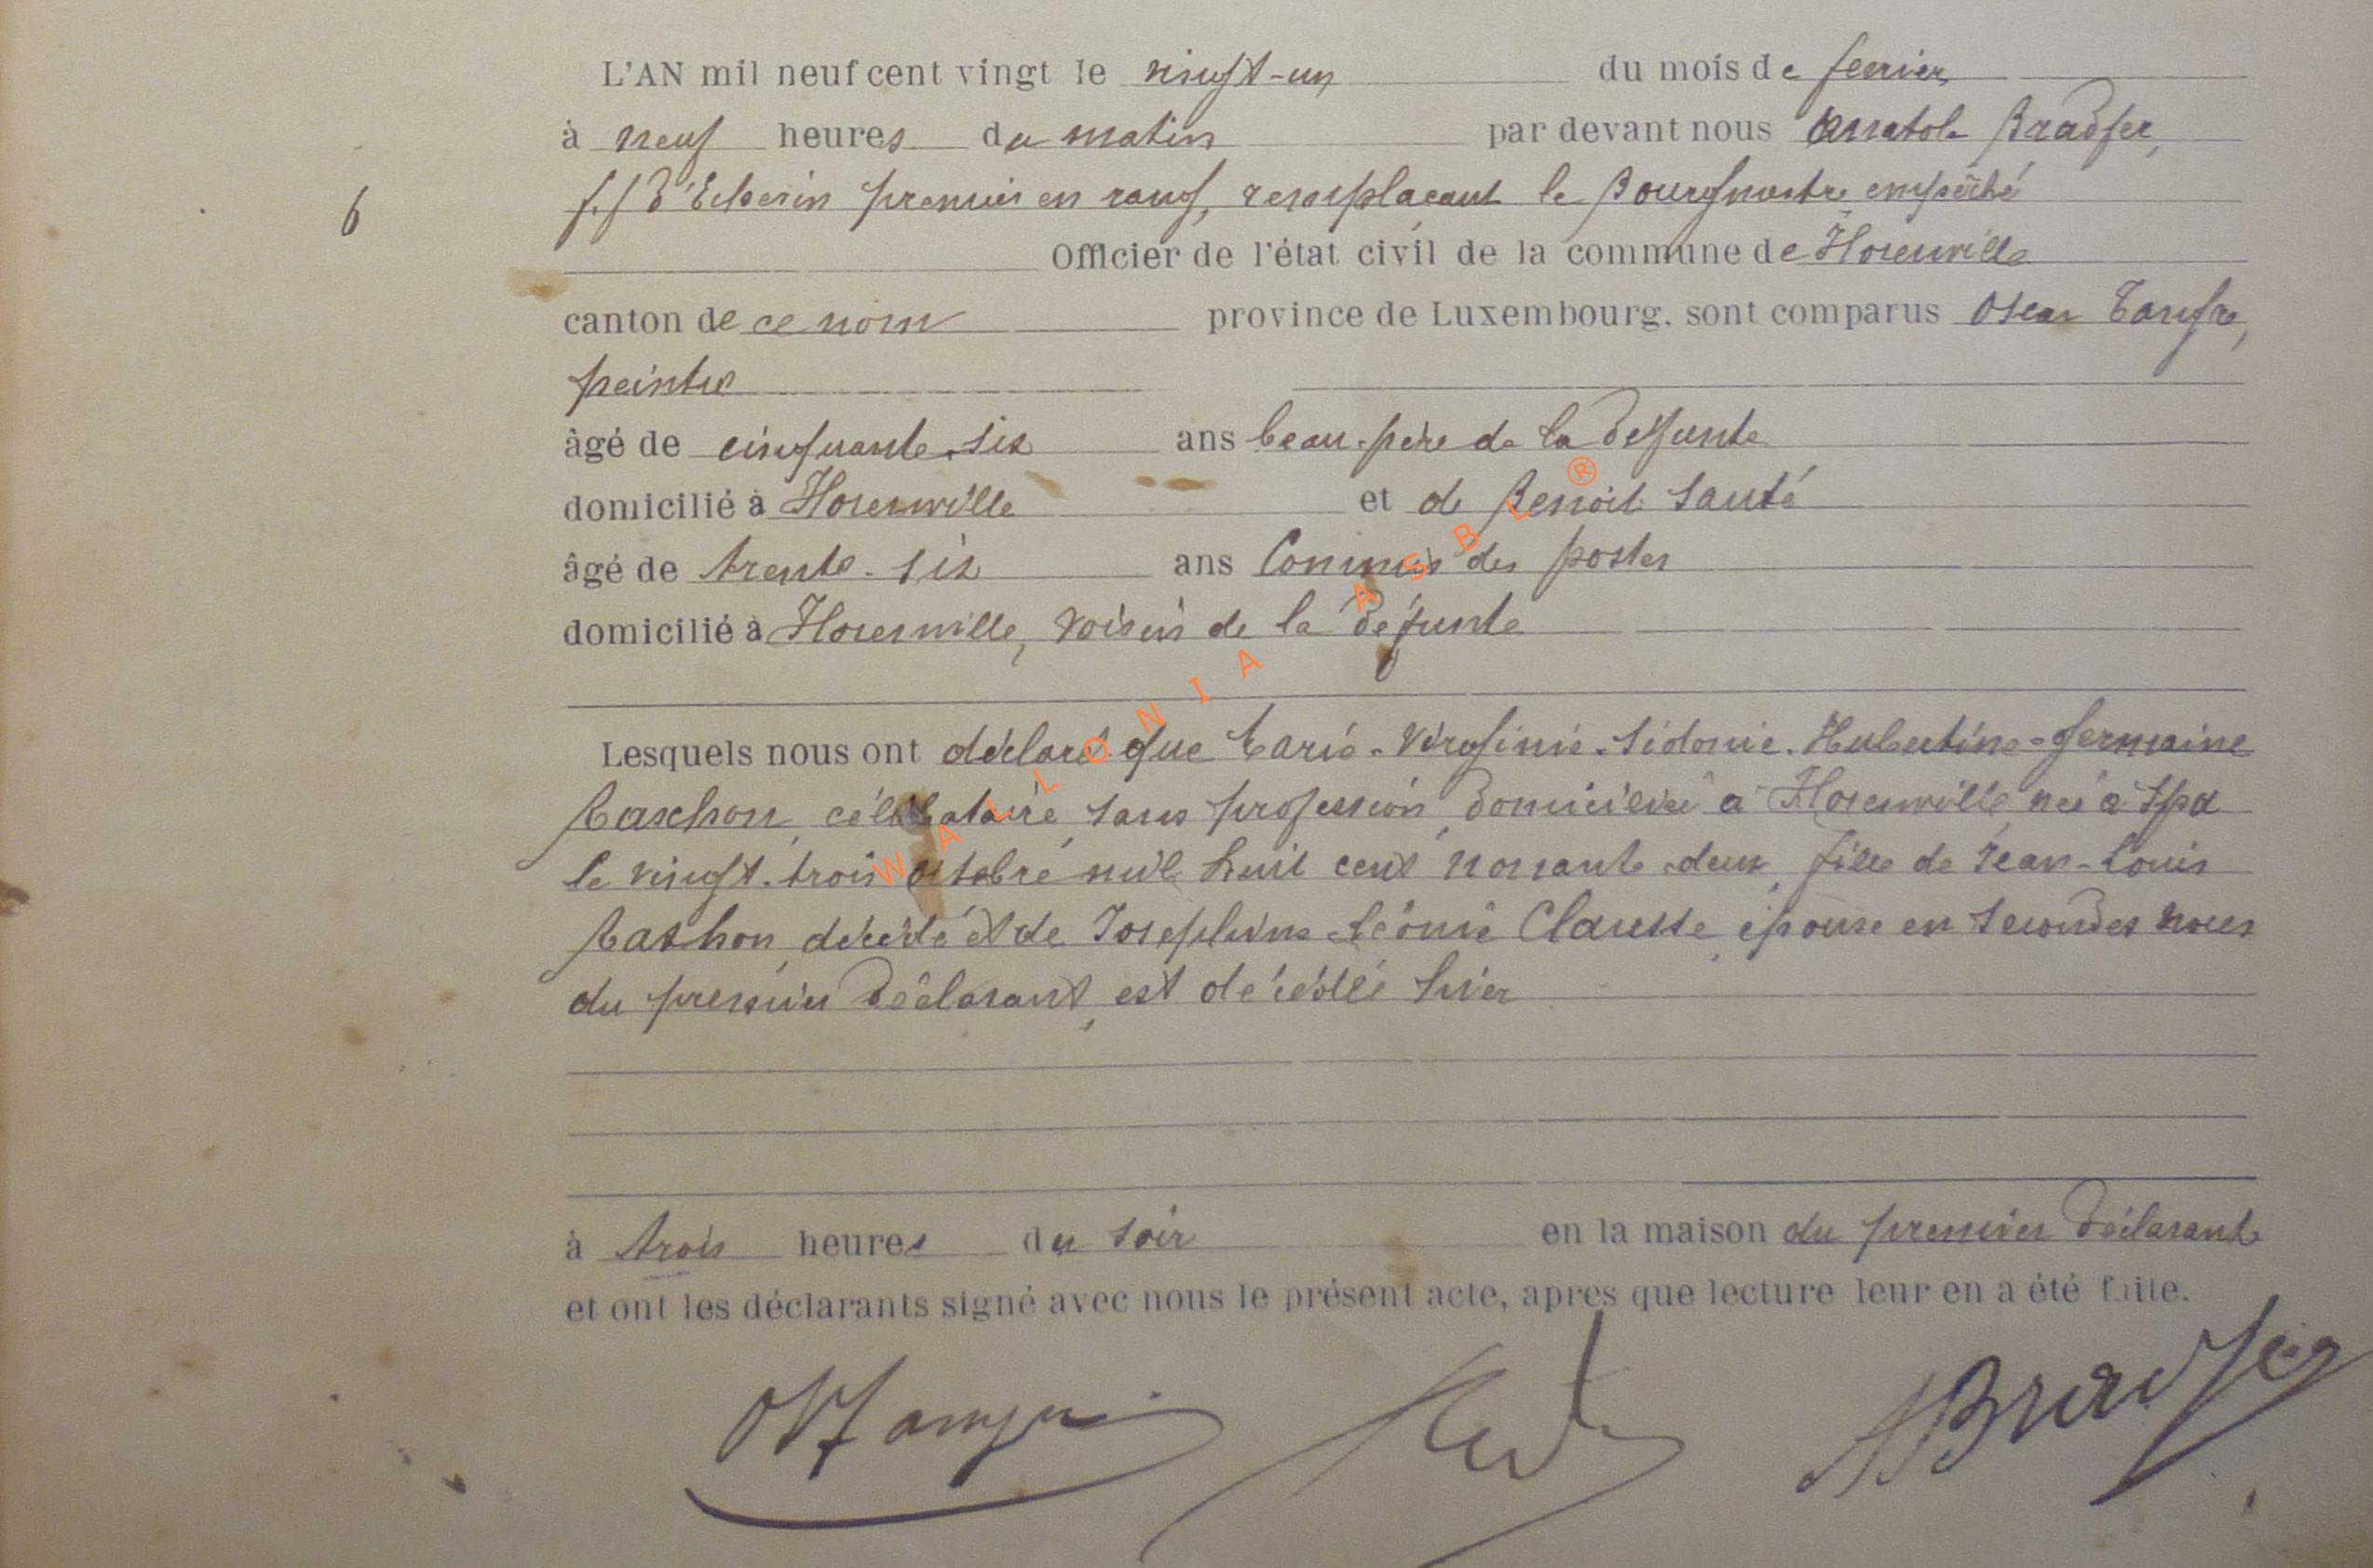 L'AN mil neuf cent vingt le vingt-un du mois de fevrier
à neuf heures du matin par devant nous Anatole Bradfer,
f.f d'Echevin premier en rang, remplaçant le Bourgmestre empêché
6
Officier de l'état civil de la commune de Florenville
canton de ce nom province de Luxembourg. sont comparus Oscar
peintre
âgé de cinquante-six ans beau-père de la défunte
domicilié à Florenville et de Benoit Santé
âgé de trente-six ans Commis des postes
domicilié à Florenville, voisin de la défunte
Lesquels nous ont déclaré que Marie-Virginie-Sidonie-Hubertine-Germaine
célibataire sans profession, domiciliée à Florenville née à Spa
le vingt-trois octobre mil huit cent nonante-deux, fille de Jean-Louis
décédé et de Josephine-Léonie Clausse, épouse en secondes noces
du premier déclarant, est décédée hier
à trois heures du soir en la maison du premier déclarant
et ont les déclarants signé avec nous le présent acte, apres que lecture leur en a été faite.
ABradfer
WALLONIA ASBL ®